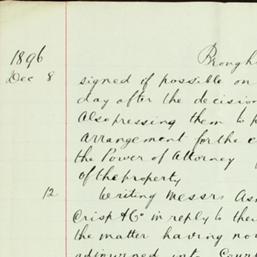 1896 Brough
Dec 8 signed if possible on
day after the decision
Also pressing them to p
arrangement for the c
the Power of Attorney
of the property
12 Writing Messrs Ash
Crisp & Co in reply to the
the matter having no
adjourned into Court